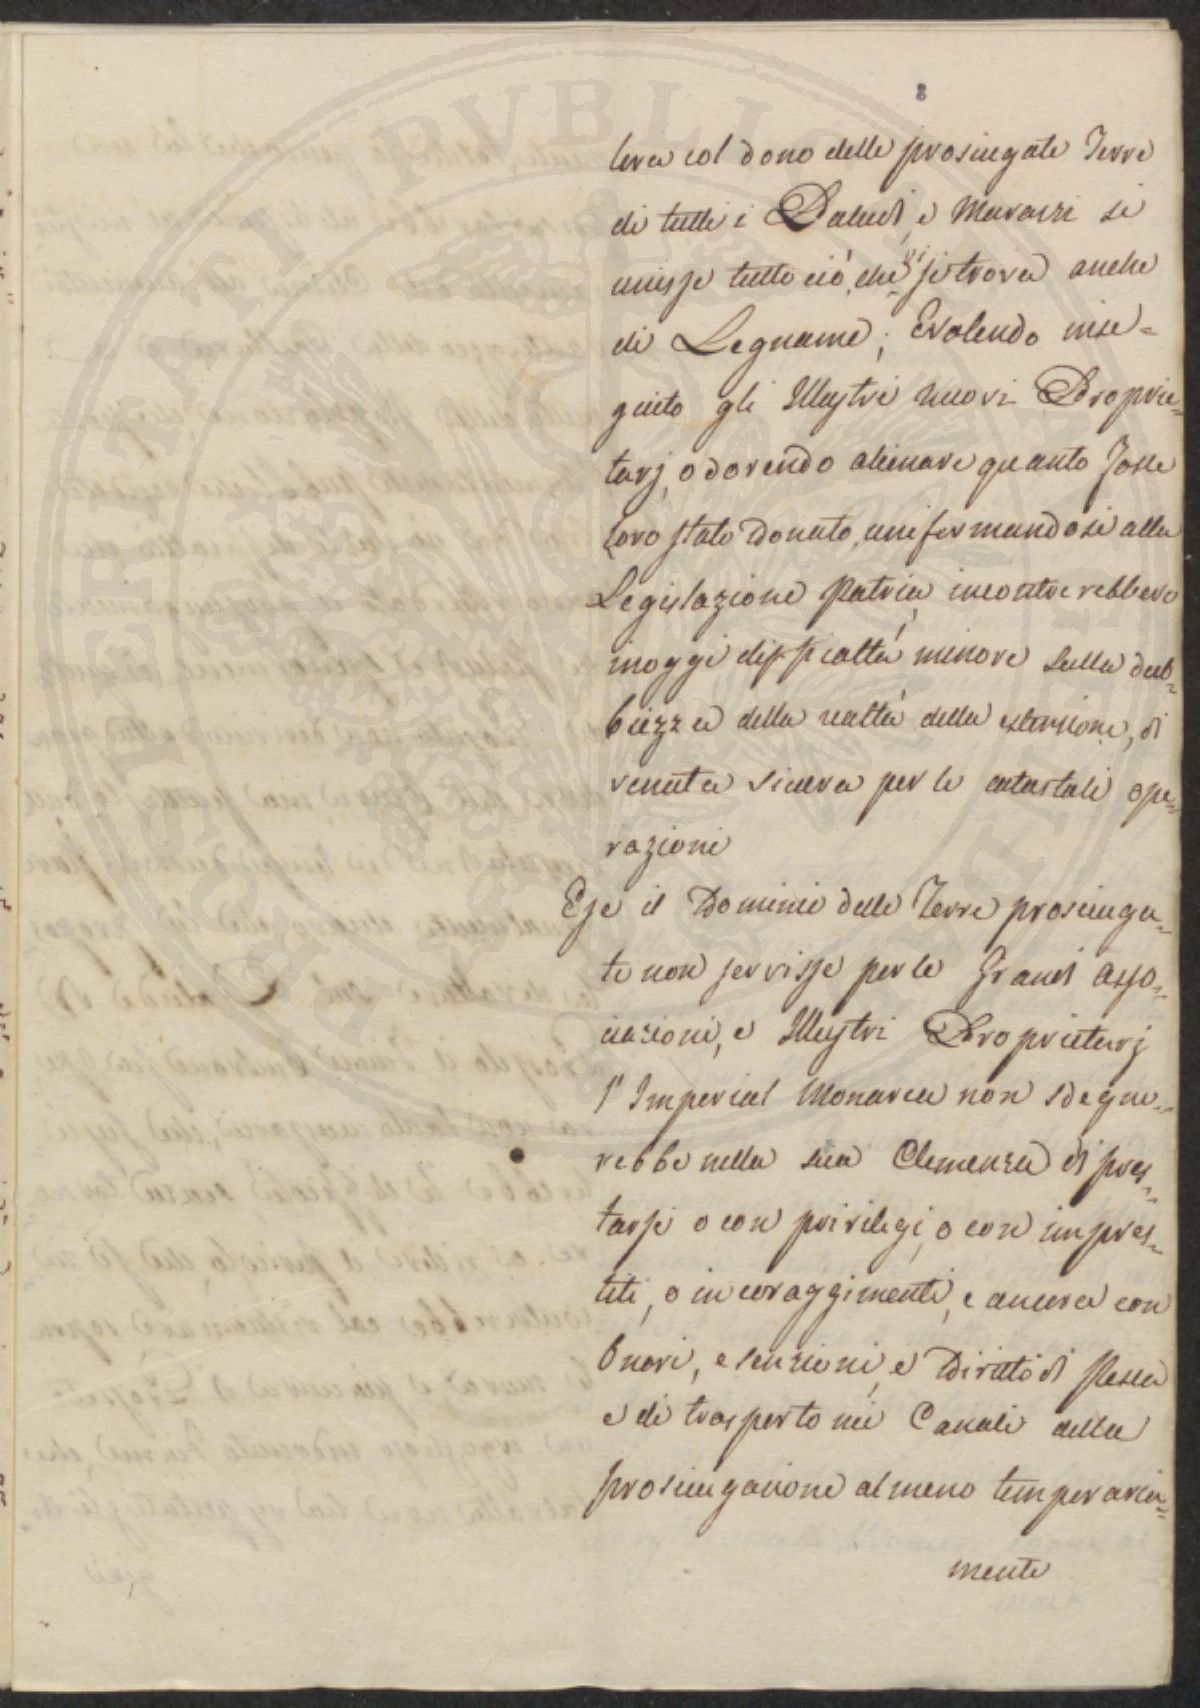 8
lera col dono delle prosciugate Terre
di tutti i Paludi, e Marazzi si
unisse tutto ciò, che si trova anche
di Legname; E volendo inse=
guito gli Illustri nuovi Proprie=
tarj, o dovendo alienare quanto fosse
loro stato Donato, uniformandosi alla
Legislazione Patria, incontrerebbero
inoggi difficoltà minore sulla dub=
biezza della realtà della estensione, di
venuta sicura per le catastali ope=
razioni
E se il Dominio delle Terre prosciuga=
te non servisse per le Grandi Asso=
ciazioni, e Illustri Proprietarj
l'Imperial Monarca non sdegne=
rebbe nella sua Clemenza di pres=
tarsi o con privilegi, o con impres=
titi, o incoraggimenti, e ancora con
Onori, esenzioni, e Diritto di Pesca
e di trasperto nei Canali della
prosciugazione almeno temperaria=
mente
PVBLICAE
VERITATI